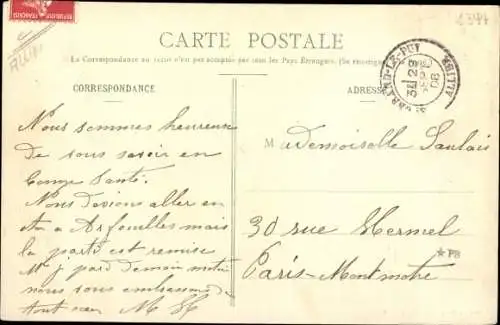 1344
REPUBLIQUE FRANÇAISE
Allier
CARTE POSTALE
La Correspondance au recto n'est pas acceptée par tous les Pays Étrangers. (Se renseigner
CORRESPONDANCE
ADRESSE
ALLIER
08
Nous sommes heureuse
De vous savoir en
bonne Santé.
Nous Devions aller en
Arfeuilles mais
la partie est remise
pard Demain matin
nous vous embrassons
tout
M H
Mademoiselle Saulais
30 rue Hermel
Paris-Montmatre
★PB